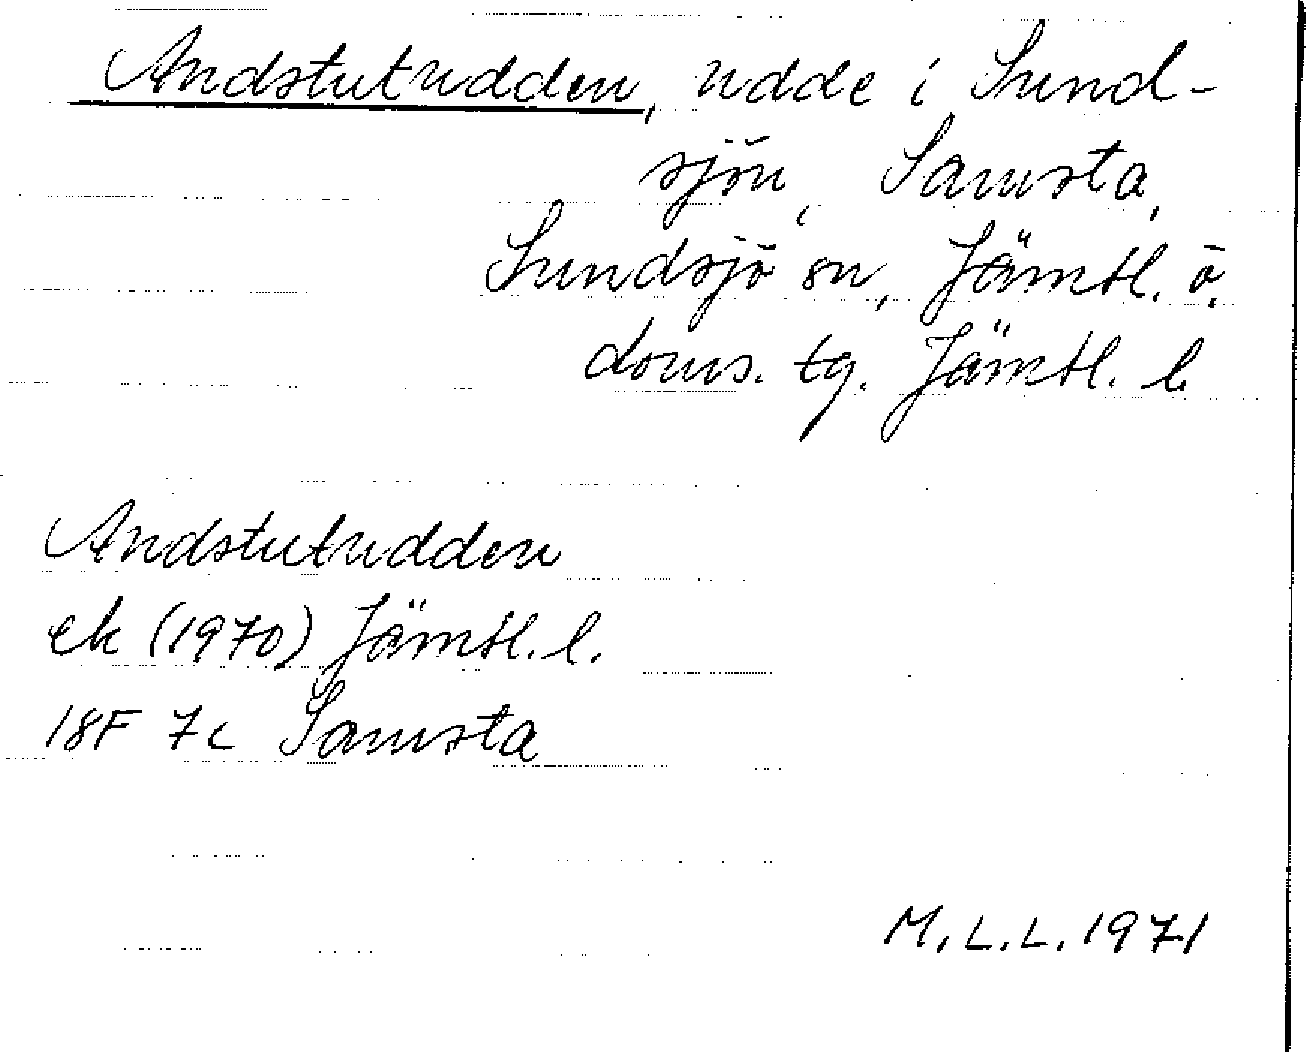 Andstutudden, udde i Sund-
sjön, Samsta,
Sundsjö sn, Jämtl. ö.
doms. tg. Jämtl. l.
Andstutudden
ek (1970) Jämtl. l.
18F 7c Samsta
M.L.L. 1971